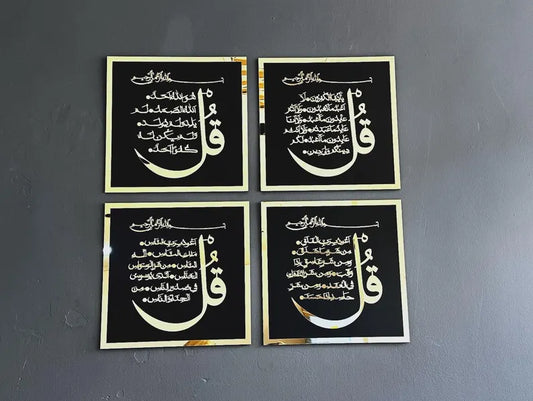 بسم الله الرحمن الرحيم
قل
هو الله أحد
الله الصمد لم
يلد ولم يولد
ولم يكن له
كفوا أحد
بسم الله الرحمن الرحيم
قل
يا أيها الكافرون لا
أعبد ما تعبدون ولا أنتم
عابدون ما أعبد ولا أنا
عابد ما عبدتم ولا أنتم
عابدون ما أعبد لكم
دينكم ولي دين
بسم الله الرحمن الرحيم
قل
أعوذ برب الناس
ملك الناس إله
الناس من شر الوسواس
الخناس الذي يوسوس
في صدور الناس من
الجنة والناس
بسم الله الرحمن الرحيم
قل
أعوذ برب الفلق
من شر ما خلق
ومن شر غاسق إذا
وقب ومن شر النفاثات
في العقد ومن شر
حاسد إذا حسد